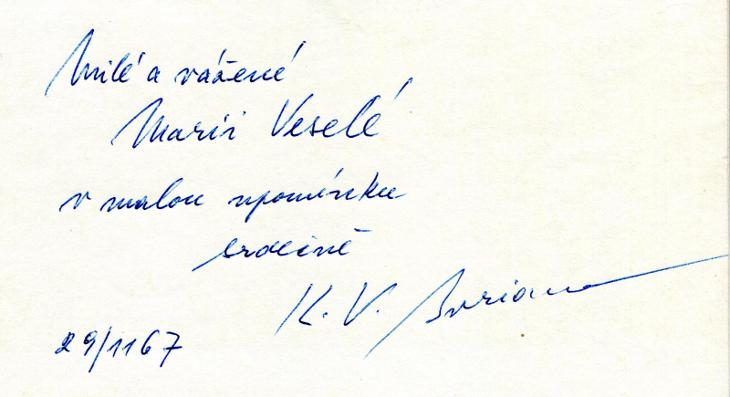 Milé a vážené
Marii Veselé
v malou upomínku
srdečně
K. V. Burian
29/1167